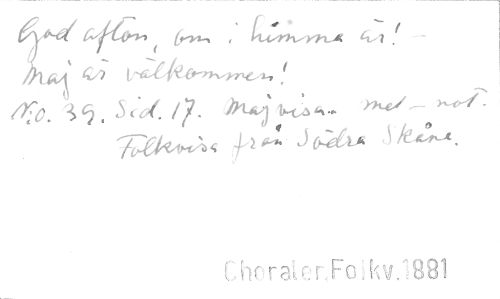 God afton, om i himma är! –
Maj är välkommen!
N:o. 39. Sid. 17. Majvisa. med – not.
Folkvisa från Södra Skåne.
Choraler.Folkv.1881